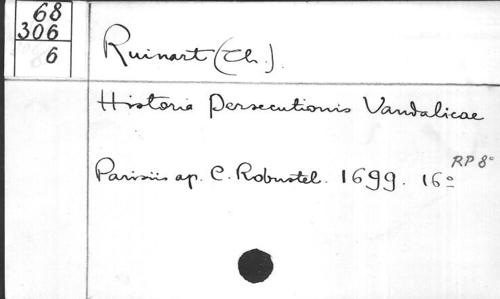 68
306
6
Ruinart (Th.).
Historia Persecutionis Vandalicae
RP 8°
Parisiis ap. C. Robustel. 1699. 16°